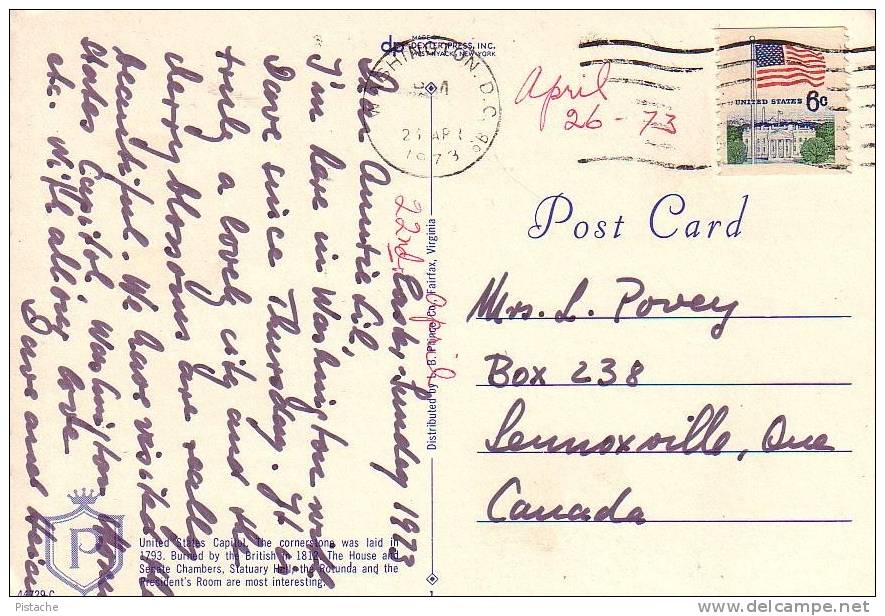 MADE BY
DEXTER PRESS, INC.
WEST NYACK, NEW YORK
dp
WASHINGTON, D.C.
PM
APR
1973
April
26 - 73
UNITED STATES 6c
Post Card
Mrs. L. Povey
Box 238
Lennoxville, Que
Canada
22nd April
Easter Sunday 1973
Dear Auntie Lil,
I'm here in Washington with
Dave since Thursday. It is
truly a lovely city and the
cherry blossoms are really
beautiful. We have visited the
States Capitol, Washington
etc. With all our love
Dave and
Distributed by B. Prince Co., Fairfax, Virginia
P
United States Capitol. The cornerstone was laid in
1793. Burned by the British in 1812. The House and
Senate Chambers, Statuary Hall, the Rotunda and the
President's Room are most interesting.
46729-C
1
Pistache
delcampe.net